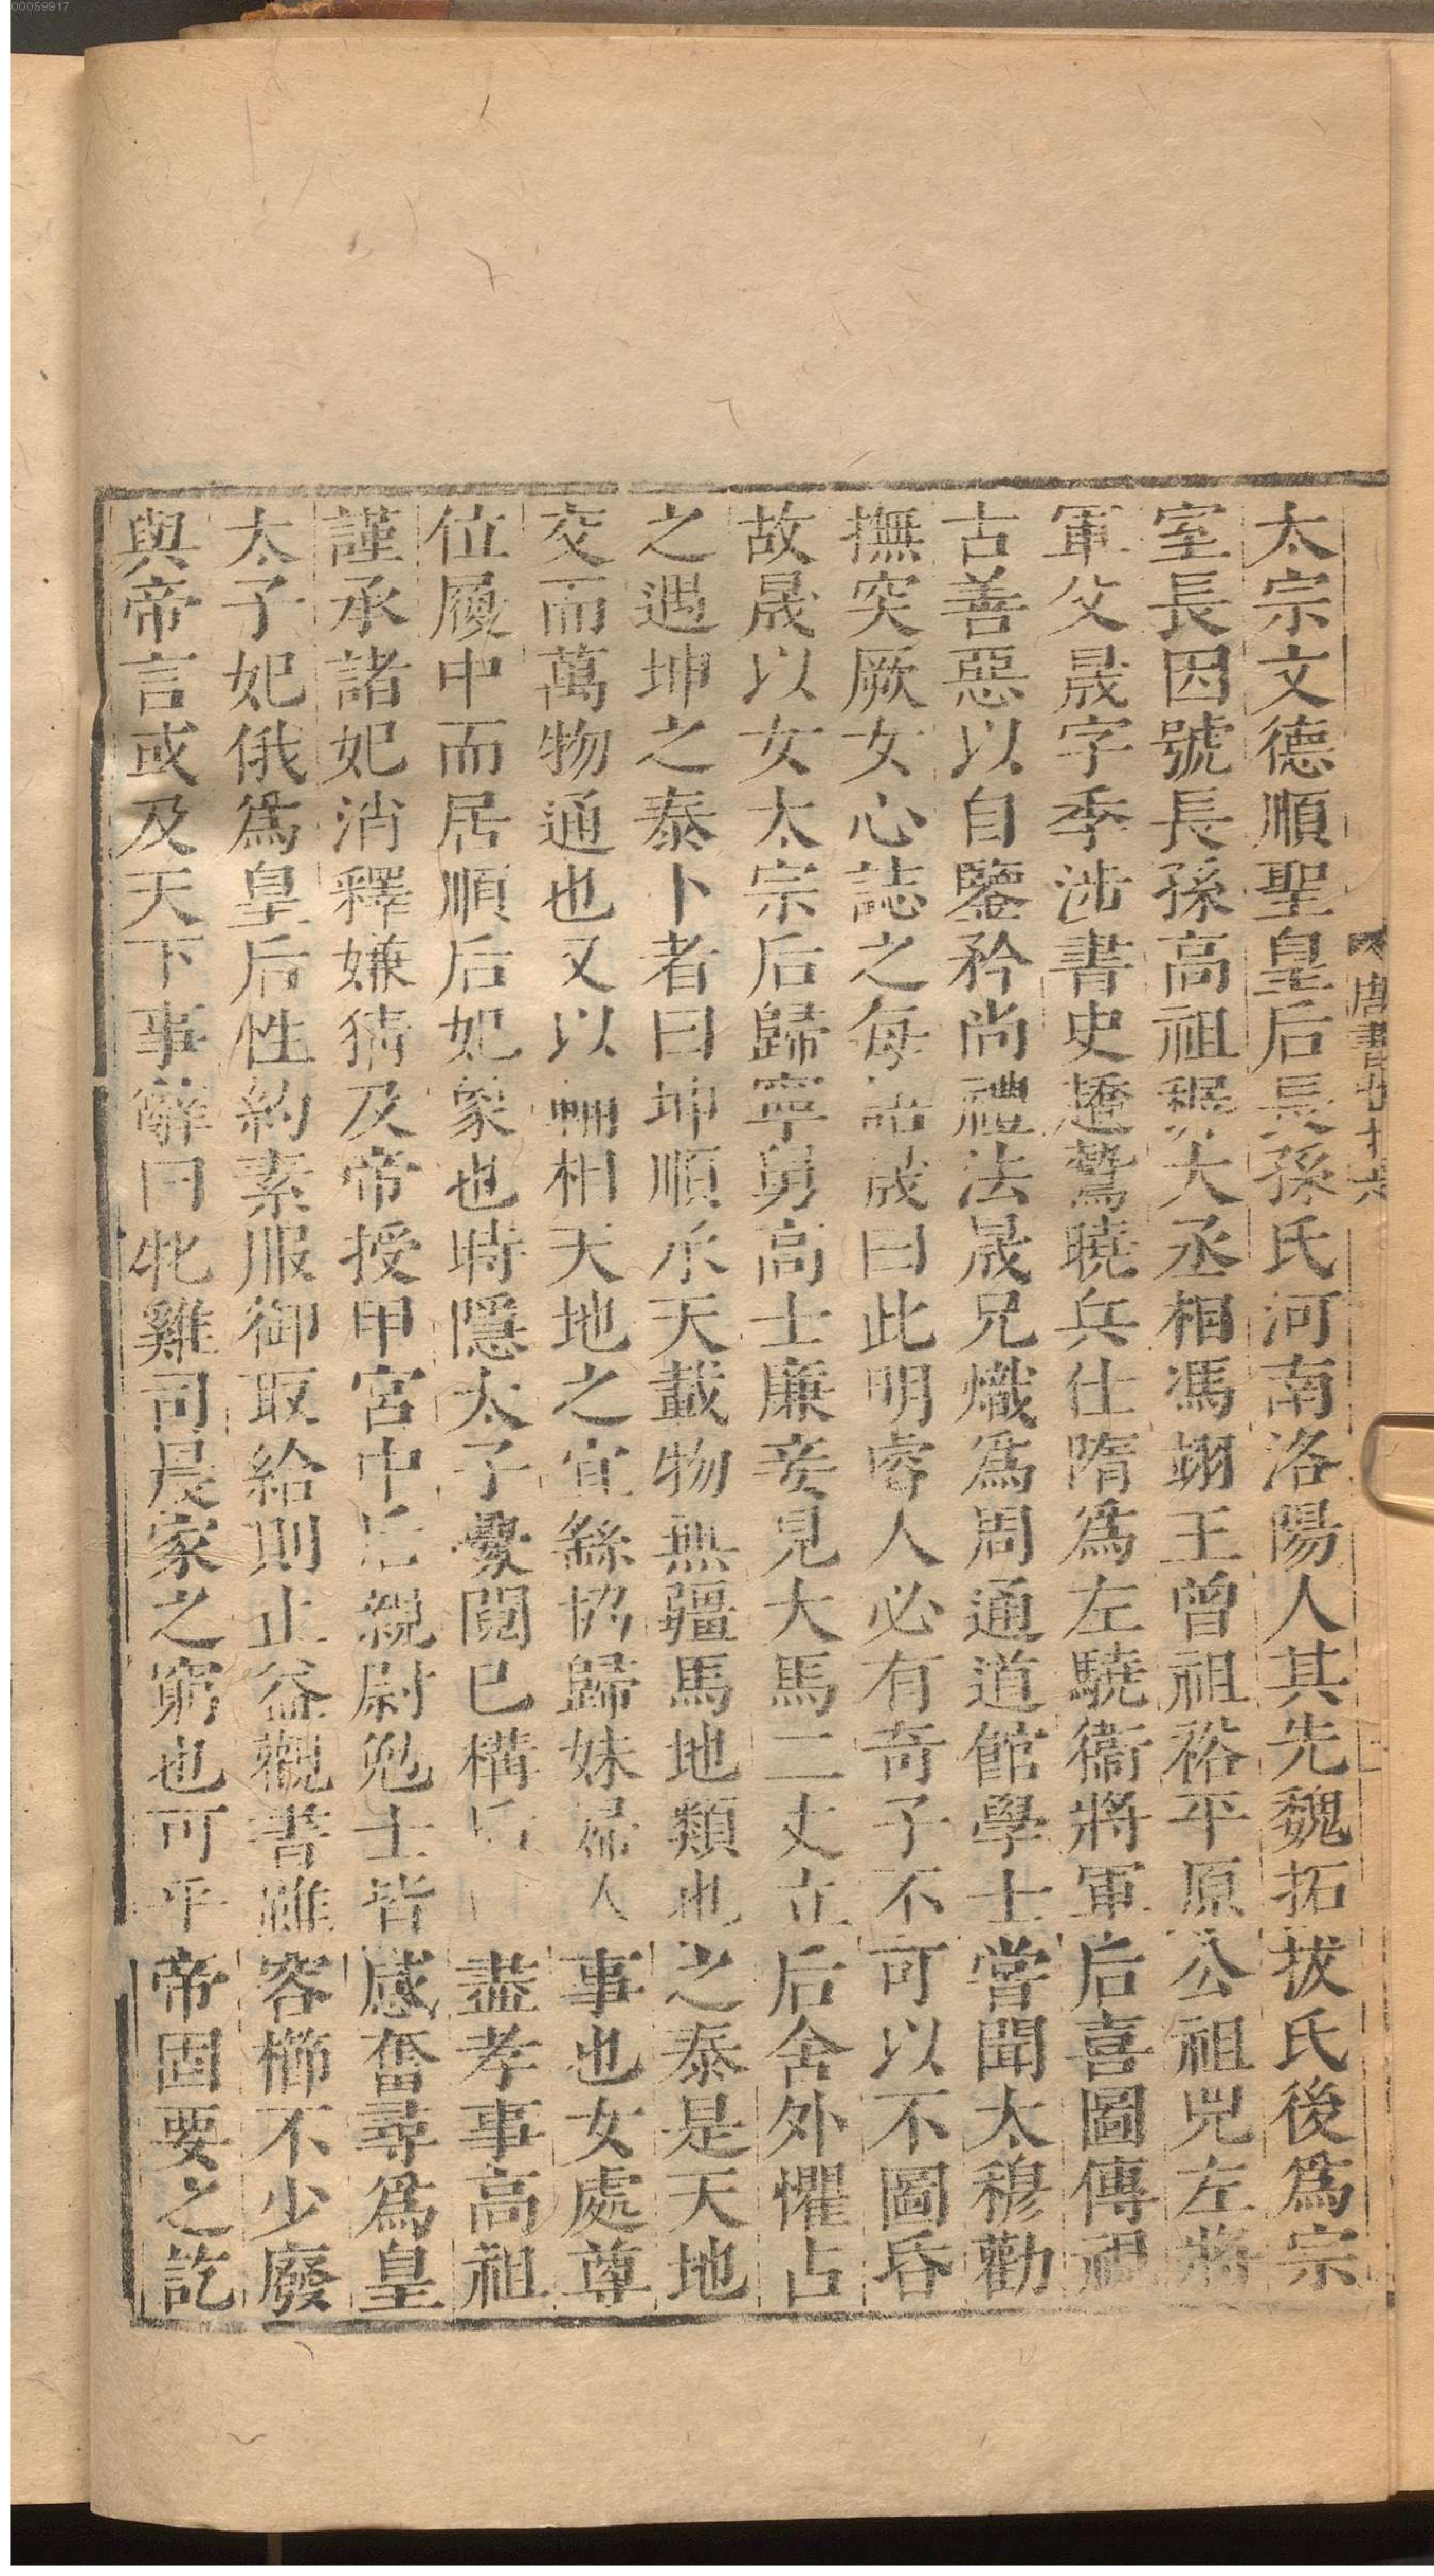 00059917
唐書七十六
太宗文德順聖皇后長孫氏河南洛陽人其先魏拓拔氏後爲宗
室長因號長孫高祖稚大丞相馮翊王曾祖裕平原公祖兕左將
軍父晟字季涉書史趫鷙曉兵仕隋爲左驍衞將軍后喜圖傳視
古善惡以自鑒矜尚禮法晟兄熾爲周通道館學士嘗聞太穆勸
撫突厥女心誌之每語晟曰此明睿人必有奇子不可以不圖昏
故晟以女太宗后歸寧舅高士廉妾見大馬二丈立后舍外懼占
之遇坤之泰卜者曰坤順承天載物無疆馬地類也之泰是天地
交而萬物通也又以輔相天地之宜繇協歸妹婦人事也女處尊
位履中而居順后妃象也時隱太子釁鬩已構后 盡孝事高祖
謹承諸妃消釋嫌猜及帝授甲宮中后親尉勉士皆感奮尋爲皇
太子妃俄爲皇后性約素服御取給則止益觀書雖容櫛不少廢
與帝言或及天下事辭曰牝雞司晨家之窮也可乎帝固要之訖